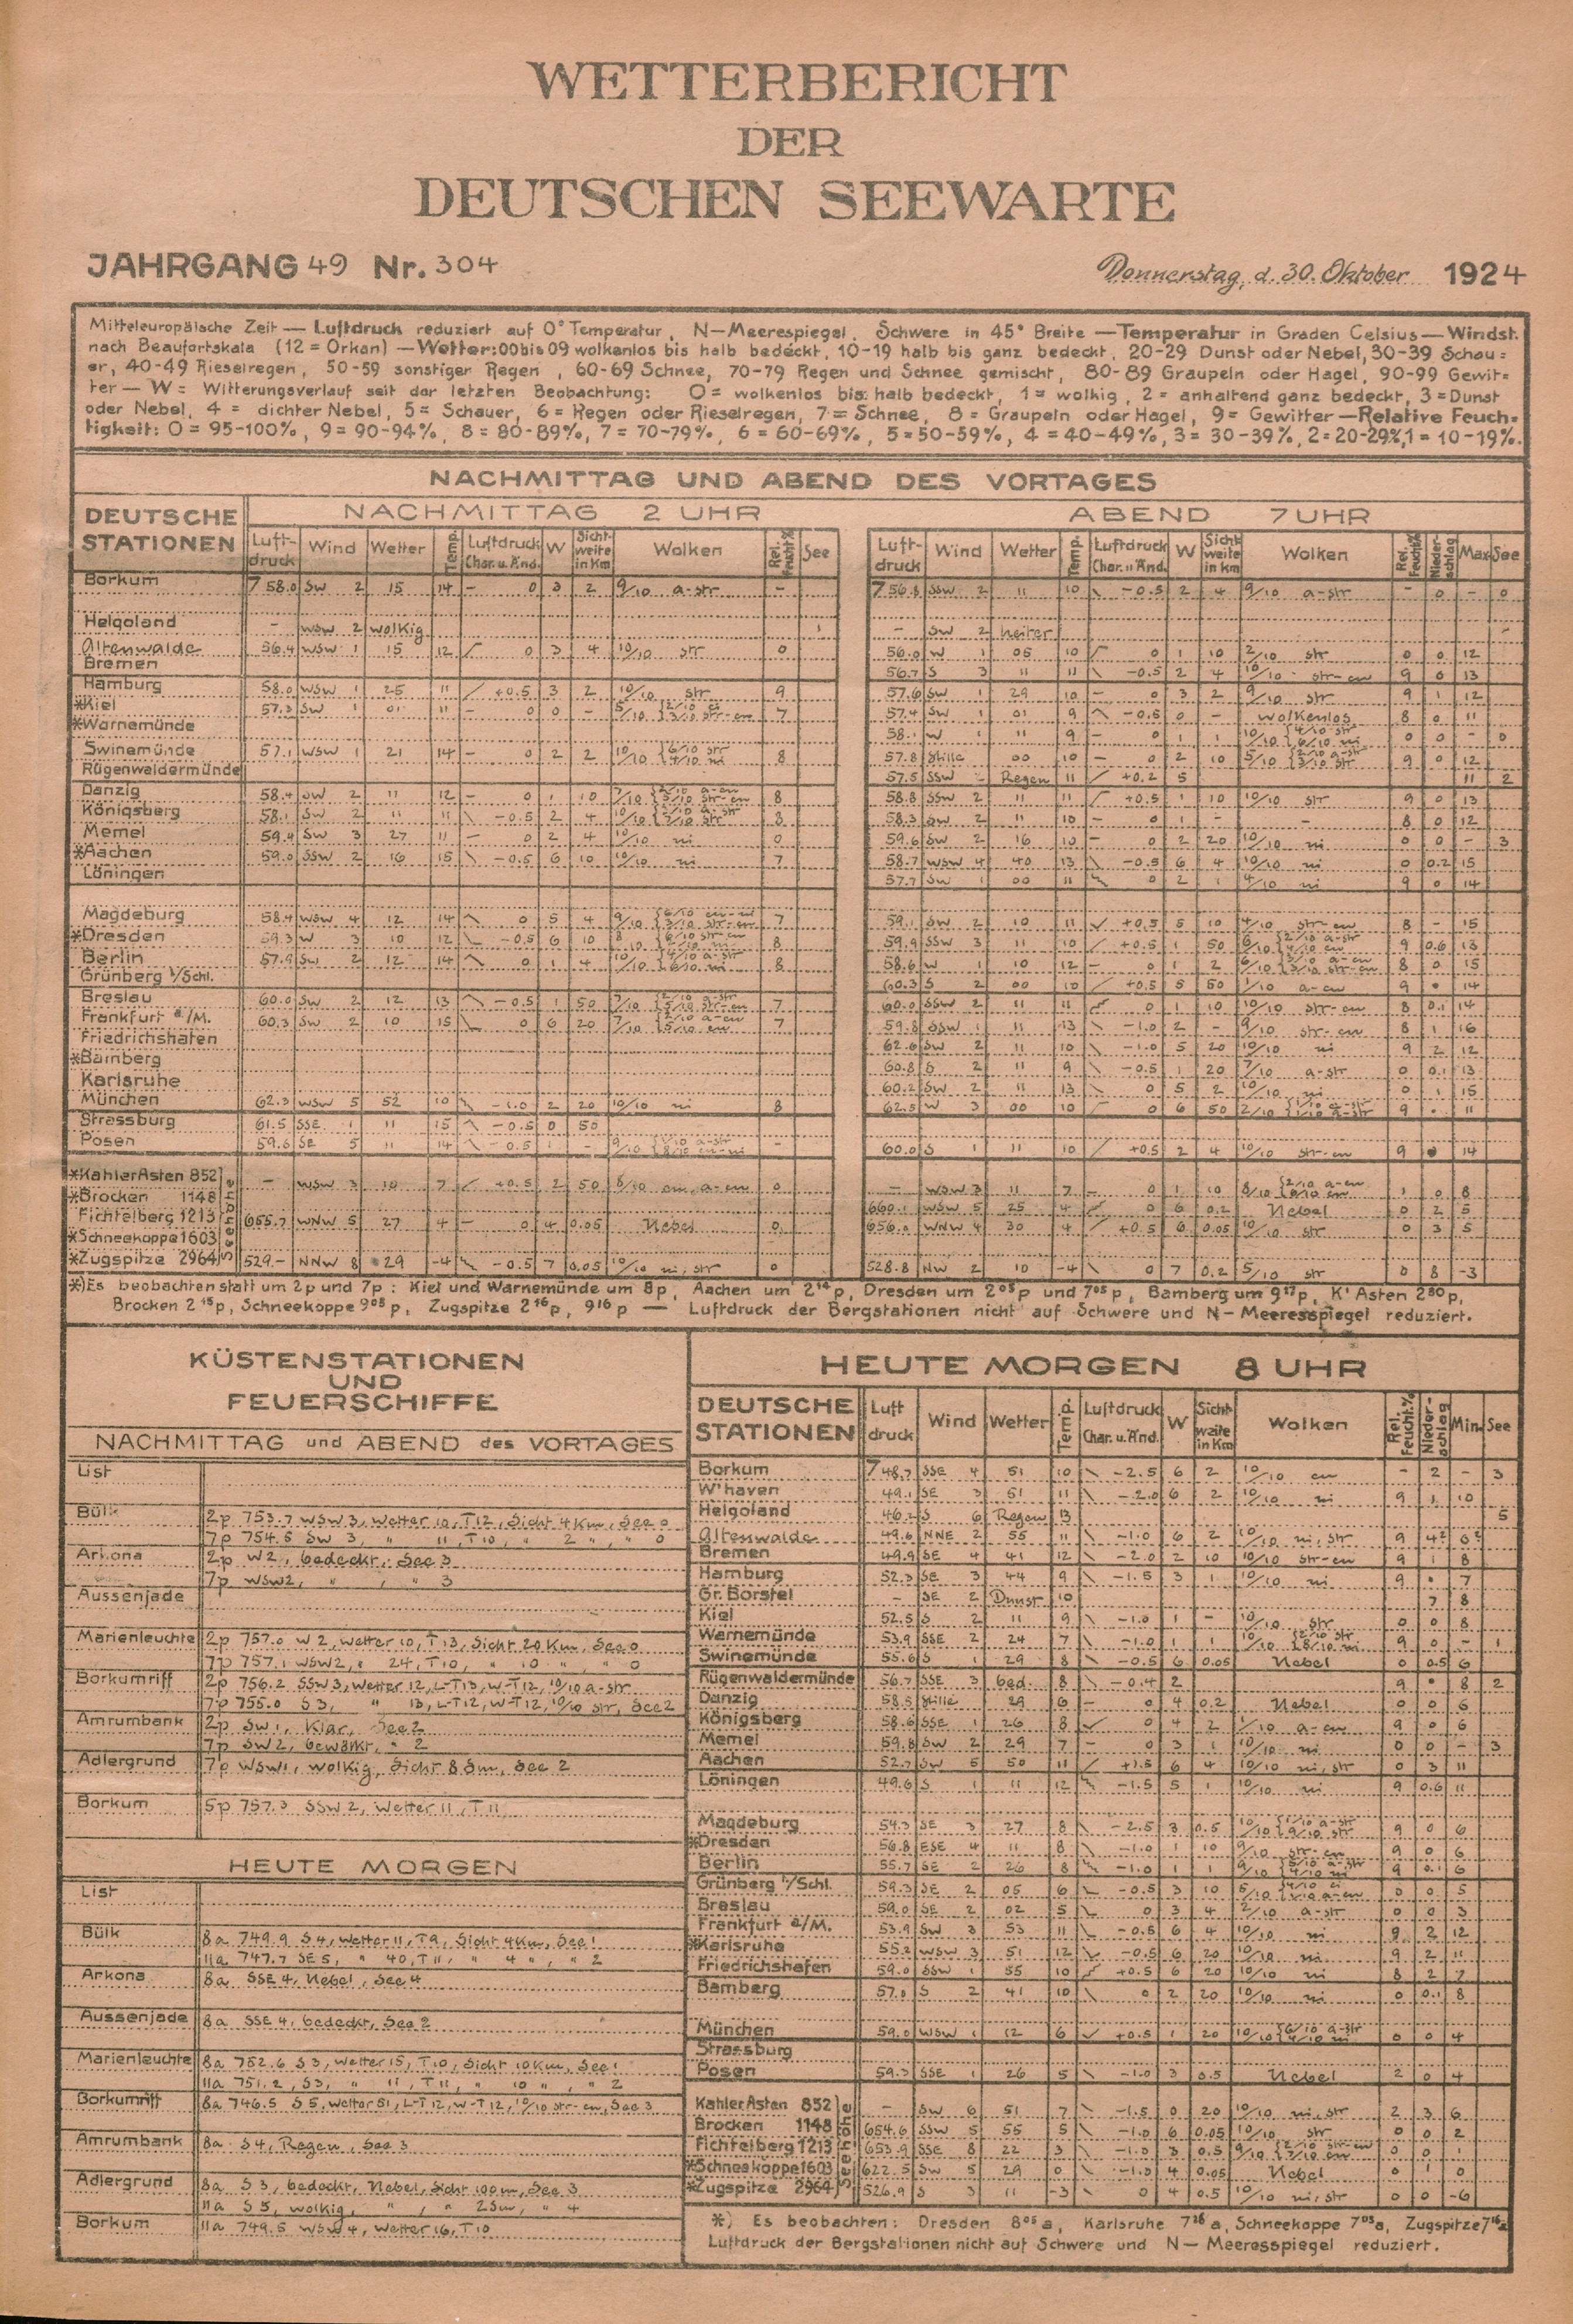 WETTERBERICHT
DER
DEUTSCHEN SEEWARTE
JAHRGANG 49 Nr. 304
Donnerstag, d. 30. Oktober 1924
Mitteleuropäische Zeit — Luftdruck reduziert auf 0° Temperatur, N—Meerespiegel, Schwere in 45° Breite — Temperatur in Graden Celsius — Windst.
nach Beaufortskala (12 = Orkan) — Wetter: 00 bis 09 wolkenlos bis halb bedeckt, 10-19 halb bis ganz bedeckt, 20-29 Dunst oder Nebel, 30-39 Schau=
er, 40-49 Rieselregen, 50-59 sonstiger Regen, 60-69 Schnee, 70-79 Regen und Schnee gemischt, 80-89 Graupeln oder Hagel, 90-99 Gewit=
ter — W = Witterungsverlauf seit der letzten Beobachtung: 0 = wolkenlos bis halb bedeckt, 1 = wolkig, 2 = anhaltend ganz bedeckt, 3 = Dunst
oder Nebel, 4 = dichter Nebel, 5 = Schauer, 6 = Regen oder Rieselregen, 7 = Schnee, 8 = Graupeln oder Hagel, 9 = Gewitter — Relative Feuch=
tigkeit: 0 = 95-100%, 9 = 90-94%, 8 = 80-89%, 7 = 70-79%, 6 = 60-69%, 5 = 50-59%, 4 = 40-49%, 3 = 30-39%, 2 = 20-29%, 1 = 10-19%.
NACHMITTAG UND ABEND DES VORTAGES
DEUTSCHE STATIONEN NACHMITTAG 2 UHR ABEND 7 UHR
Luft-druck Wind Wetter Temp. Luftdruck Char. u. Änd. W Sicht-weite in Km Wolken Rel. Feucht% See Luft-druck Wind Wetter Temp. Luftdruck Char. u. Änd. W Sicht-weite in Km Wolken Rel. Feucht% Nieder-schlag Max See
Borkum 758.0 SW 2 15 14 – 0 3 2 9/10 a-str – 756.8 SSW 2 11 10 \ -0.5 2 4 9/10 a-str – 0 – 0
Helgoland – WSW 2 wolkig – SW 2 heiter
Altenwalde 56.4 WSW 1 15 12 0 3 4 10/10 str 0 56.0 W 1 05 10 0 1 10 2/10 str 0 0 12
Bremen 56.7 S 3 11 11 -0.5 2 4 10/10 str-cu 9 0 13
Hamburg 58.0 WSW 1 25 11 / +0.5 3 2 10/10 str 9 57.6 SW 1 29 10 – 0 3 2 9/10 str 9 1 12
*Kiel 57.3 SW 1 01 11 – 0 0 – 7 57.4 SW 1 01 9 -0.5 0 – wolkenlos 8 0 11
*Warnemünde 58.1 W 1 11 9 – 0 1 1 10/10 4/10 str 6/10 ni 0 0 – 0
Swinemünde 57.1 WSW 1 21 14 – 0 2 2 10/10 6/10 str 4/10 ni 8 57.8 Stille 00 10 – 0 2 10 5/10 2/10 a-str 3/10 str 9 0 12
Rügenwaldermünde 57.5 SSW – Regen 11 / +0.2 5 11 2
Danzig 58.4 SW 2 11 12 – 0 1 10 8 58.8 SSW 2 11 11 +0.5 1 10 10/10 str 9 0 13
Königsberg 58.1 SW 2 11 11 \ -0.5 2 4 8 58.3 SW 2 11 10 – 0 1 – – 8 0 12
Memel 59.4 SW 3 27 11 – 0 2 4 10/10 ni 0 59.6 SW 2 16 10 – 0 2 20 10/10 ni 0 0 – 3
*Aachen 59.0 SSW 2 16 15 \ -0.5 6 10 10/10 ni 7 58.7 WSW 4 40 13 \ -0.5 6 4 10/10 ni 0 0.2 15
Löningen 57.7 SW 1 00 11 0 2 1 4/10 ni 9 0 14
Magdeburg 58.4 WSW 4 12 14 0 5 4 9/10 6/10 cu-ni 3/10 str-cu 7 59.1 SW 2 10 11 +0.5 5 10 4/10 str-cu 8 – 15
*Dresden 59.3 W 3 10 12 -0.5 6 10 8 59.9 SSW 3 11 10 / +0.5 1 50 6/10 2/10 a-str 4/10 cu 9 0.6 13
Berlin 57.9 SW 2 12 14 0 1 4 10/10 4/10 a-str 6/10 ni 8 58.6 W 1 10 12 – 0 1 2 6/10 8 0 15
Grünberg i/Schl. 60.3 S 2 00 10 +0.5 5 50 1/10 a-cu 9 • 14
Breslau 60.0 SW 2 12 13 -0.5 1 50 7/10 2/10 a-str 5/10 str-cu 7 60.0 SSW 2 11 11 0 1 10 10/10 str-cu 8 0.1 14
Frankfurt a/M. 60.3 SW 2 10 15 0 6 20 7/10 7 59.8 SSW 1 11 13 \ -1.0 2 – 9/10 str-cu 8 1 16
Friedrichshafen 62.6 SW 2 11 10 \ -1.0 5 20 10/10 ni 9 2 12
*Bamberg 60.8 S 2 11 9 \ -0.5 1 20 7/10 a-str 0 0.1 13
Karlsruhe 60.2 SW 2 11 13 \ 0 5 2 10/10 ni 0 1 15
München 62.3 WSW 5 52 10 -1.0 2 20 10/10 ni 8 62.5 W 3 00 10 0 6 50 2/10 9 • 11
Strassburg 61.5 SSE 1 11 15 \ -0.5 0 50
Posen 59.6 SE 5 11 14 -0.5 1 – 9/10 1/10 a-str 8/10 cu-ni – 60.0 S 1 11 10 / +0.5 2 4 10/10 str-cu 9 • 14
Seehöhe
*Kahler Asten 852 – WSW 3 10 7 / +0.5 2 50 8/10 cu, a-cu 0 – WSW 3 11 7 – 0 1 10 8/10 2/10 a-cu 6/10 cu 1 0 8
*Brocken 1148 660.1 WSW 5 25 4 0 6 0.2 Nebel 0 2 5
Fichtelberg 1213 655.7 WNW 5 27 4 – 0 4 0.05 Nebel 0 656.0 WNW 4 30 4 +0.5 6 0.05 10/10 str 0 3 5
*Schneekoppe 1603
*Zugspitze 2964 529.– NNW 8 29 -4 -0.5 7 0.05 10/10 ni, str 0 528.8 NW 2 10 -4 0 7 0.2 5/10 str 0 8 -3
*) Es beobachten statt um 2p und 7p: Kiel und Warnemünde um 8p, Aachen um 2¹⁴p, Dresden um 2⁰⁵p und 7⁰⁵p, Bamberg um 9¹⁷p, K' Asten 2³⁰p,
Brocken 2¹⁵p, Schneekoppe 9⁰⁵p, Zugspitze 2¹⁶p, 9¹⁶p — Luftdruck der Bergstationen nicht auf Schwere und N—Meeresspiegel reduziert.
KÜSTENSTATIONEN
UND
FEUERSCHIFFE
NACHMITTAG und ABEND des VORTAGES
List
Bülk 2p 753.7 WSW 3, Wetter 10, T 12, Sicht 4 Km, See 0
7p 754.5 SW 3, " 11, T 10, " 2 ", " 0
Arkona 2p W 2, bedeckt, See 3
7p WSW 2, " , " 3
Aussenjade
Marienleuchte 2p 757.0 W 2, Wetter 10, T 13, Sicht 20 Km, See 0
7p 757.1 WSW 2, " 24, T 10, " 10 ", " 0
Borkumriff 2p 756.2 SSW 3, Wetter 12, L-T 13, W-T 12, 10/10 a-str
7p 755.0 S 3, " 13, L-T 12, W-T 12, 10/10 str, See 2
Amrumbank 2p SW 1, Klar, See 2
7p SW 2, bewölkt, " 2
Adlergrund 7p WSW 1, wolkig, Sicht 8 Sm, See 2
Borkum 5p 757.3 SSW 2, Wetter 11, T 11
HEUTE MORGEN
List
Bülk 8a 749.9 S 4, Wetter 11, T 9, Sicht 4 Km, See 1
11a 747.7 SE 5, " 40, T 11, " 4 ", " 2
Arkona 8a SSE 4, Nebel, See 4
Aussenjade 8a SSE 4, bedeckt, See 2
Marienleuchte 8a 752.6 S 3, Wetter 15, T 10, Sicht 10 Km, See 1
11a 751.2, S 3, " 11, T 11, " 10 ", " 2
Borkumriff 8a 746.5 S 5, Wetter 51, L-T 12, W-T 12, 10/10 str-cu, See 3
Amrumbank 8a S 4, Regen, See 3
Adlergrund 8a S 3, bedeckt, Nebel, Sicht 100 m, See 3
11a S 5, wolkig, " , " 2 Sm, " 4
Borkum 11a 749.5 WSW 4, Wetter 16, T 10
HEUTE MORGEN 8 UHR
DEUTSCHE STATIONEN Luft druck Wind Wetter Temp. Luftdruck Char. u. Änd. W Sicht-weite in Km Wolken Rel. Feucht.% Nieder-schlag Min. See
Borkum 748.7 SSE 4 51 10 \ -2.5 6 2 10/10 cu – 2 – 3
W'haven 49.1 SE 3 51 11 \ -2.0 6 2 10/10 ni 9 1 10
Helgoland 46.2 S 6 Regen 13 5
Altenwalde 49.6 NNE 2 55 11 \ -1.0 6 2 10/10 ni, str 9 4? 6?
Bremen 49.9 SE 4 41 12 \ -2.0 2 10 10/10 str-cu 9 1 8
Hamburg 52.3 SE 3 44 9 \ -1.5 3 1 10/10 ni 9 • 7
Gr. Borstel – SE 2 Dunst 10 7 8
Kiel 52.5 S 2 11 9 \ -1.0 1 – 10/10 str 0 0 8
Warnemünde 53.9 SSE 2 24 7 \ -1.0 1 1 10/10 2/10 str 8/10 ni 9 0 – 1
Swinemünde 55.6 S 1 29 8 \ -0.5 6 0.05 Nebel 0 0.5 6
Rügenwaldermünde 56.7 SSE 3 bed. 8 \ -0.4 2 9 • 8 2
Danzig 58.5 Stille 29 6 – 0 4 0.2 Nebel 0 0 6
Königsberg 58.6 SSE 1 26 8 0 4 2 1/10 a-cu 9 0 6
Memel 59.8 SW 2 29 7 – 0 3 1 10/10 ni 0 0 – 3
Aachen 52.7 SW 5 50 11 / +1.5 6 4 10/10 ni, str 0 3 11
Löningen 49.6 S 1 11 12 -1.5 5 1 10/10 ni 9 0.6 11
Magdeburg 54.3 SE 3 27 8 \ -2.5 3 0.5 10/10 1/10 a-str 9/10 str 9 0 6
*Dresden 56.8 ESE 4 11 8 \ -1.0 1 10 9/10 str-cu 9 0 6
Berlin 55.7 SE 2 26 8 -1.0 1 1 9/10 5/10 a-str 4/10 ni 9 0.1 6
Grünberg i/Schl. 59.3 SE 2 05 6 -0.5 3 10 5/10 0 0 5
Breslau 59.0 SE 2 02 5 0 3 4 2/10 a-str 0 0 3
Frankfurt a/M. 53.9 SW 3 53 11 \ -0.5 6 4 10/10 ni 9 2 12
*Karlsruhe 55.2 WSW 3 51 12 -0.5 6 20 10/10 ni 9 2 11
Friedrichshafen 59.0 SSW 1 55 10 +0.5 6 20 10/10 ni 8 2 7
Bamberg 57.8 S 2 41 10 \ 0 2 20 10/10 ni 0 0.1 8
München 59.0 WSW 1 12 6 +0.5 1 20 10/10 6/10 a-str 4/10 ni 0 0 4
Strassburg
Posen 59.3 SSE 1 26 5 \ -1.0 3 0.5 Nebel 2 0 4
Seehöhe
Kahler Asten 852 – SW 6 51 7 \ -1.5 0 20 10/10 ni, str 2 3 6
Brocken 1148 654.6 SSW 5 55 5 \ -1.0 6 0.05 10/10 str 0 0 2
Fichtelberg 1213 653.9 SSE 8 22 3 \ -1.0 3 0.5 9/10 2/10 str-cu 7/10 cu 0 0 1
*Schneekoppe 1603 622.5 SW 5 29 0 \ -1.3 4 0.05 Nebel 0 1 0
*Zugspitze 2964 526.9 S 3 11 -3 \ 0 4 0.5 10/10 ni, str 0 0 -6
*) Es beobachten: Dresden 8⁰⁵a, Karlsruhe 7²⁶a, Schneekoppe 7⁰³a, Zugspitze 7¹⁶a
Luftdruck der Bergstationen nicht auf Schwere und N—Meeresspiegel reduziert.